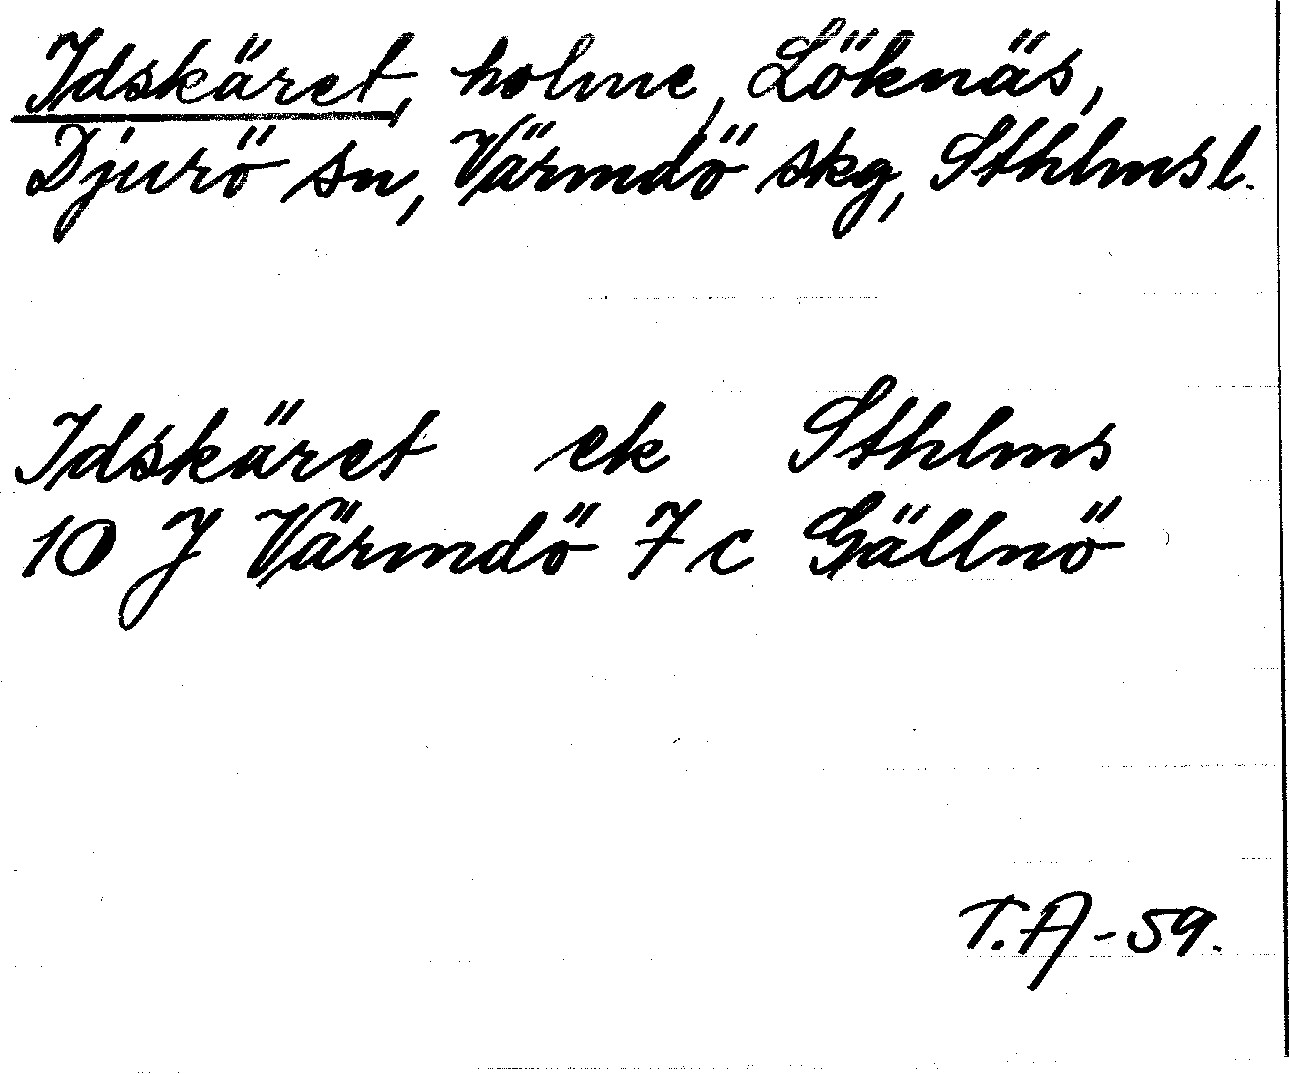 Idskäret, holme, Löknäs,
Djurö sn, Värmdö skg, Sthlms l.
Idskäret ek Sthlms
10 J Värmdö 7 c Gällnö
T.A-59.